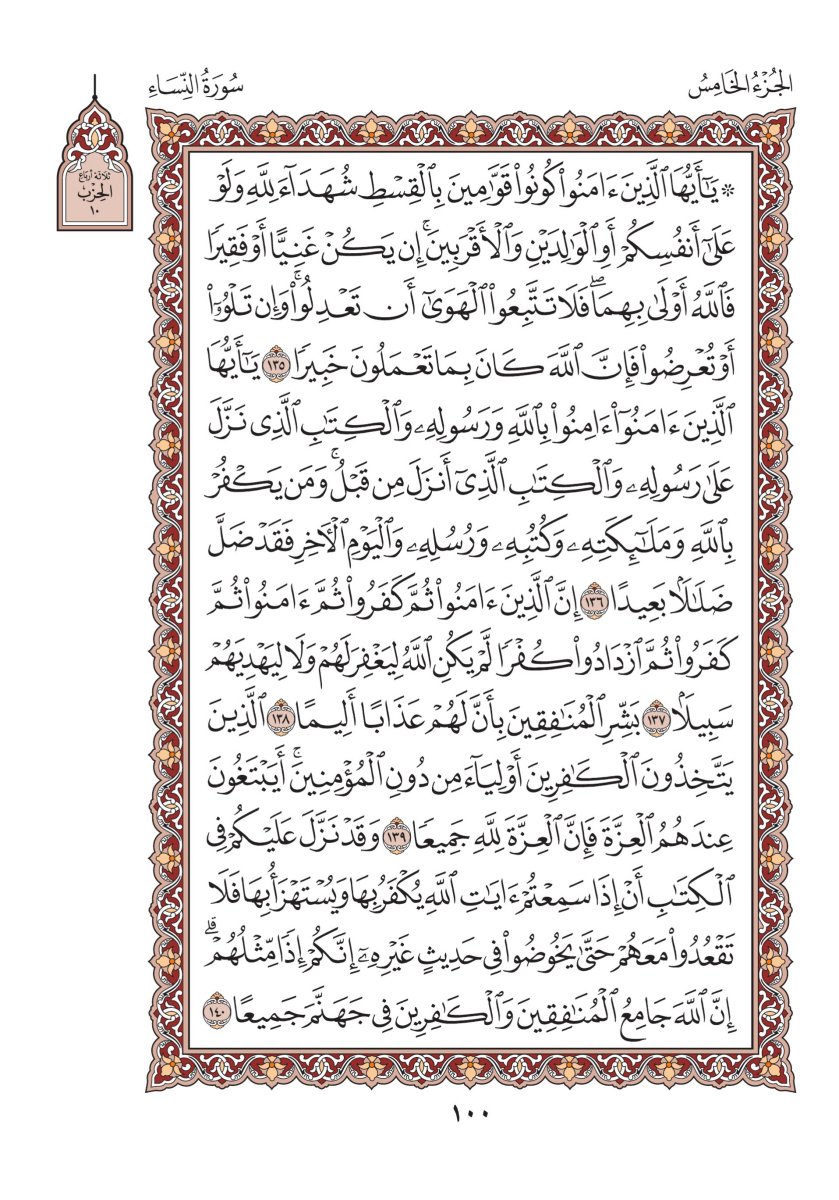 الجُزْءُ الخَامِسُ
سُورَةُ النِّسَاءِ
ثلاثة أرباع
الحِزْب
١٠
۞ يَٰٓأَيُّهَا ٱلَّذِينَ ءَامَنُوا۟ كُونُوا۟ قَوَّٰمِينَ بِٱلْقِسْطِ شُهَدَآءَ لِلَّهِ وَلَوْ
عَلَىٰٓ أَنفُسِكُمْ أَوِ ٱلْوَٰلِدَيْنِ وَٱلْأَقْرَبِينَ ۚ إِن يَكُنْ غَنِيًّا أَوْ فَقِيرًا
فَٱللَّهُ أَوْلَىٰ بِهِمَا ۖ فَلَا تَتَّبِعُوا۟ ٱلْهَوَىٰٓ أَن تَعْدِلُوا۟ ۚ وَإِن تَلْوُۥٓا۟
أَوْ تُعْرِضُوا۟ فَإِنَّ ٱللَّهَ كَانَ بِمَا تَعْمَلُونَ خَبِيرًا ١٣٥ يَٰٓأَيُّهَا
ٱلَّذِينَ ءَامَنُوٓا۟ ءَامِنُوا۟ بِٱللَّهِ وَرَسُولِهِۦ وَٱلْكِتَٰبِ ٱلَّذِى نَزَّلَ
عَلَىٰ رَسُولِهِۦ وَٱلْكِتَٰبِ ٱلَّذِىٓ أَنزَلَ مِن قَبْلُ ۚ وَمَن يَكْفُرْ
بِٱللَّهِ وَمَلَٰٓئِكَتِهِۦ وَكُتُبِهِۦ وَرُسُلِهِۦ وَٱلْيَوْمِ ٱلْـَٔاخِرِ فَقَدْ ضَلَّ
ضَلَٰلًۢا بَعِيدًا ١٣٦ إِنَّ ٱلَّذِينَ ءَامَنُوا۟ ثُمَّ كَفَرُوا۟ ثُمَّ ءَامَنُوا۟ ثُمَّ
كَفَرُوا۟ ثُمَّ ٱزْدَادُوا۟ كُفْرًا لَّمْ يَكُنِ ٱللَّهُ لِيَغْفِرَ لَهُمْ وَلَا لِيَهْدِيَهُمْ
سَبِيلًۢا ١٣٧ بَشِّرِ ٱلْمُنَٰفِقِينَ بِأَنَّ لَهُمْ عَذَابًا أَلِيمًا ١٣٨ ٱلَّذِينَ
يَتَّخِذُونَ ٱلْكَٰفِرِينَ أَوْلِيَآءَ مِن دُونِ ٱلْمُؤْمِنِينَ ۚ أَيَبْتَغُونَ
عِندَهُمُ ٱلْعِزَّةَ فَإِنَّ ٱلْعِزَّةَ لِلَّهِ جَمِيعًا ١٣٩ وَقَدْ نَزَّلَ عَلَيْكُمْ فِى
ٱلْكِتَٰبِ أَنْ إِذَا سَمِعْتُمْ ءَايَٰتِ ٱللَّهِ يُكْفَرُ بِهَا وَيُسْتَهْزَأُ بِهَا فَلَا
تَقْعُدُوا۟ مَعَهُمْ حَتَّىٰ يَخُوضُوا۟ فِى حَدِيثٍ غَيْرِهِۦٓ ۚ إِنَّكُمْ إِذًا مِّثْلُهُمْ ۗ
إِنَّ ٱللَّهَ جَامِعُ ٱلْمُنَٰفِقِينَ وَٱلْكَٰفِرِينَ فِى جَهَنَّمَ جَمِيعًا ١٤٠
١٠٠